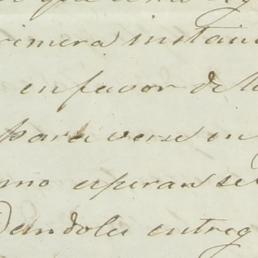 primera instan
en favor de l
para verse en
mo esperan se
Dandoles entreg